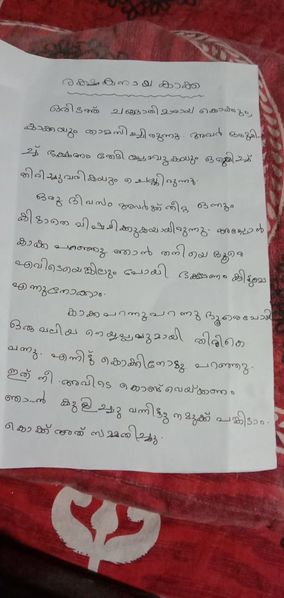 രക്ഷകനായ കാക്ക
ഒരിടത്ത് ചങ്ങാതിമാരായ കൊക്കും
കാക്കയും താമസിച്ചിരുന്നു. അവർ ഒരുമി
ച്ച് ഭക്ഷണം തേടി പോവുകയും ഒരുമിച്ച്
തിരിച്ചുവരികയും ചെയ്തിരുന്നു.
ഒരു ദിവസം അവർക്ക് തീറ്റ ഒന്നും
കിട്ടാതെ വിഷമിക്കുകയായിരുന്നു. അപ്പോൾ
കാക്ക പറഞ്ഞു ഞാൻ തനിയെ ദൂരെ
എവിടെയെങ്കിലും പോയി ഭക്ഷണം കിട്ടുമോ
എന്നുനോക്കാം.
കാക്ക പറന്നുപറന്നു ദൂരെപോയി
ഒരു വലിയ നെയ്യപ്പവുമായി തിരികെ
വന്നു. എന്നിട്ട് കൊക്കിനോടു പറഞ്ഞു.
ഇത് നീ അവിടെ കൊണ്ട് വെയ്ക്കണം
ഞാൻ കുളിച്ചു വന്നിട്ടു നമുക്ക് പങ്കിടാം.
കൊക്ക് അത് സമ്മതിച്ചു.